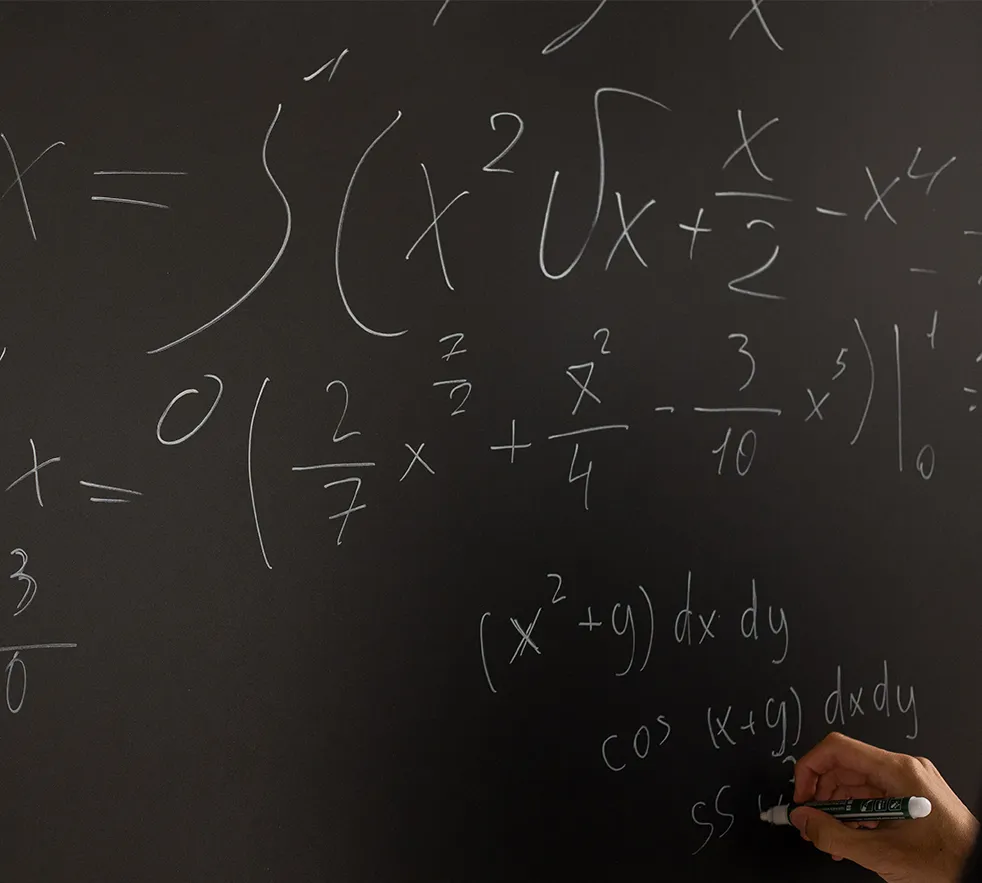 x
x = ∫₀¹ (x² √x + x/2 - x⁴ -
x = (2/7 x^(7/2) + x²/4 - 3/10 x⁵)|₀¹
3/0
(x² + y) dx dy
cos (x+y) dxdy
SS